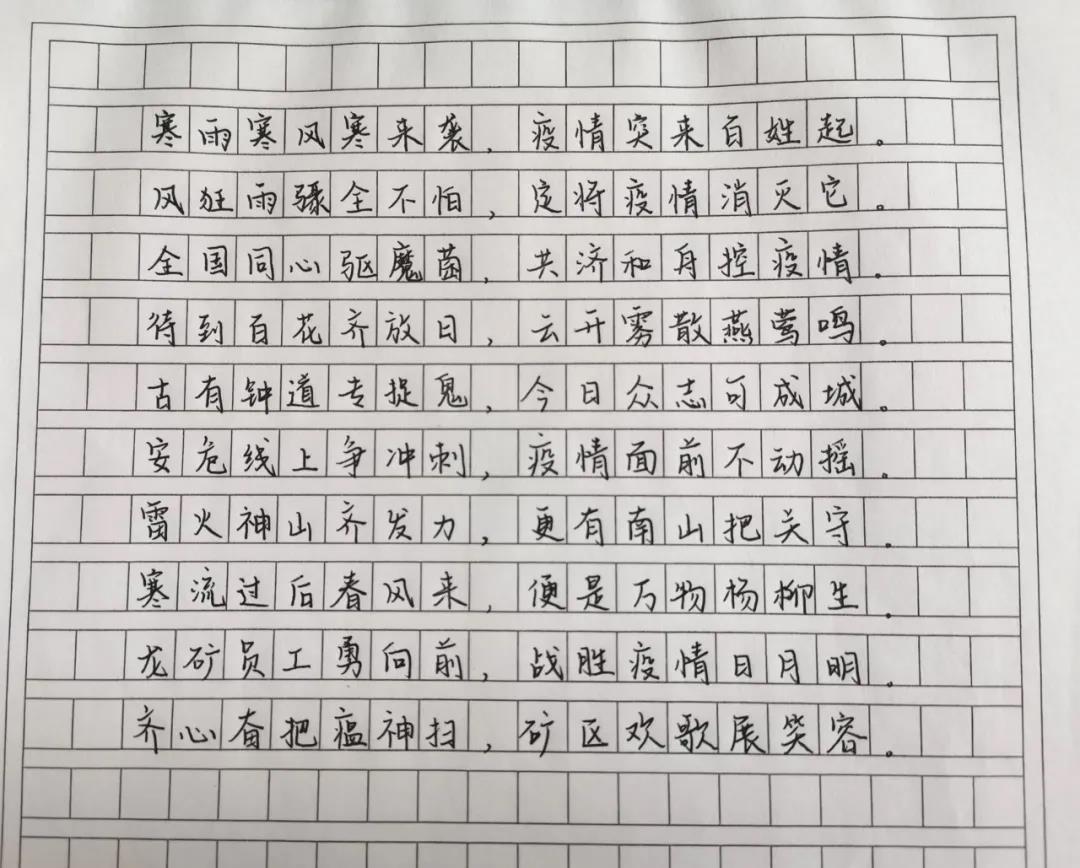 寒雨寒风寒来袭，疫情突来百姓起。
风狂雨骤全不怕，定将疫情消灭它。
全国同心驱魔菌，共济和舟控疫情。
待到百花齐放日，云开雾散燕莺鸣。
古有钟道专捉鬼，今日众志可成城。
安危线上争冲刺，疫情面前不动摇。
雷火神山齐发力，更有南山把关守。
寒流过后春风来，便是万物杨柳生。
龙矿员工勇向前，战胜疫情日月明。
齐心奋把瘟神扫，矿区欢歌展笑容。